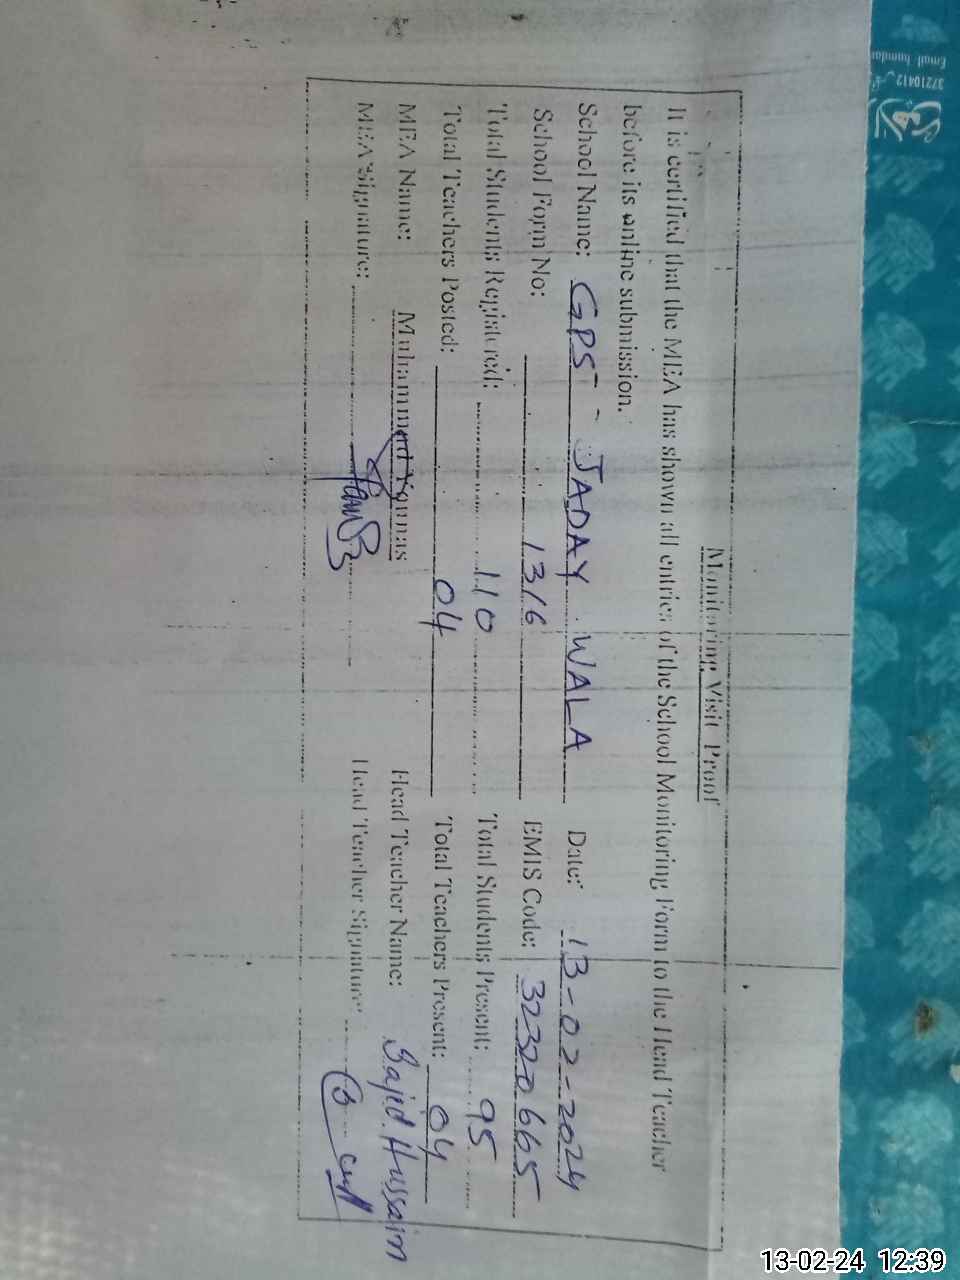 Monitoring Visit Proof
It is certified that the MEA has shown all entries of the School Monitoring Form to the Head Teacher
before its online submission.
School Name: GPS - JADAY WALA Date: 13-02-2024
School Form No: 1316 EMIS Code: 32320665
Total Students Registered: 110 Total Students Present: 95
Total Teachers Posted: 04 Total Teachers Present: 04
MEA Name: Muhammad Younas Head Teacher Name: Sajid Hussain
MEA Signature: Head Teacher Signature
37210412
Email
13-02-24 12:39